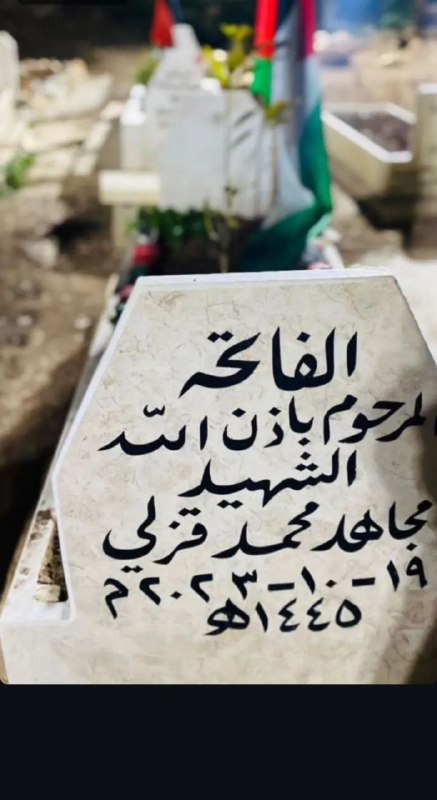 الفاتحة
لمرحوم باذن الله
الشهيد
مجاهد محمد قزلي
١٩-١٠-٢٠٢٣م
١٤٤٥هـ